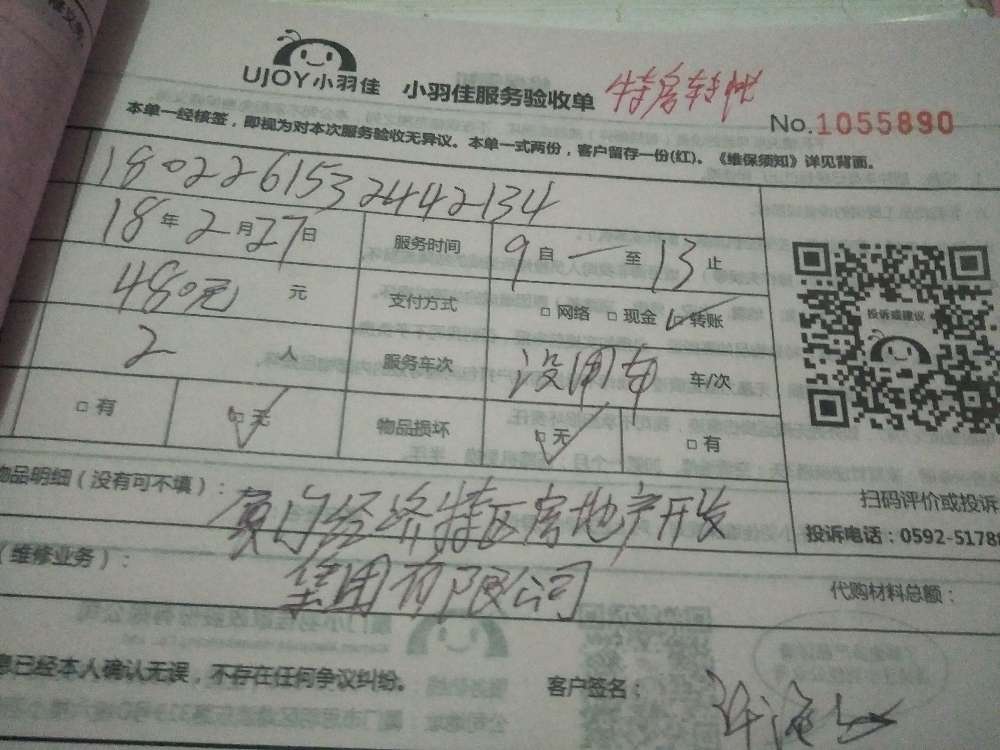 UJOY小羽佳 小羽佳服务验收单 特房转帐
No.1055890
本单一经核签，即视为对本次服务验收无异议。本单一式两份，客户留存一份(红)。《维保须知》详见背面。
1802261532442134
18年2月27日 服务时间 9自一至13止
480元 元 支付方式 □网络 □现金 □转账
投诉或建议
2 人 服务车次 没用车 车/次
□有 □无 物品损坏 □无 □有
物品明细（没有可不填）： 厦门经济特区房地产开发
扫码评价或投诉
投诉电话：0592-5178
（维修业务）： 集团有限公司
代购材料总额：
息已经本人确认无误，不存在任何争议纠纷。 客户签名：